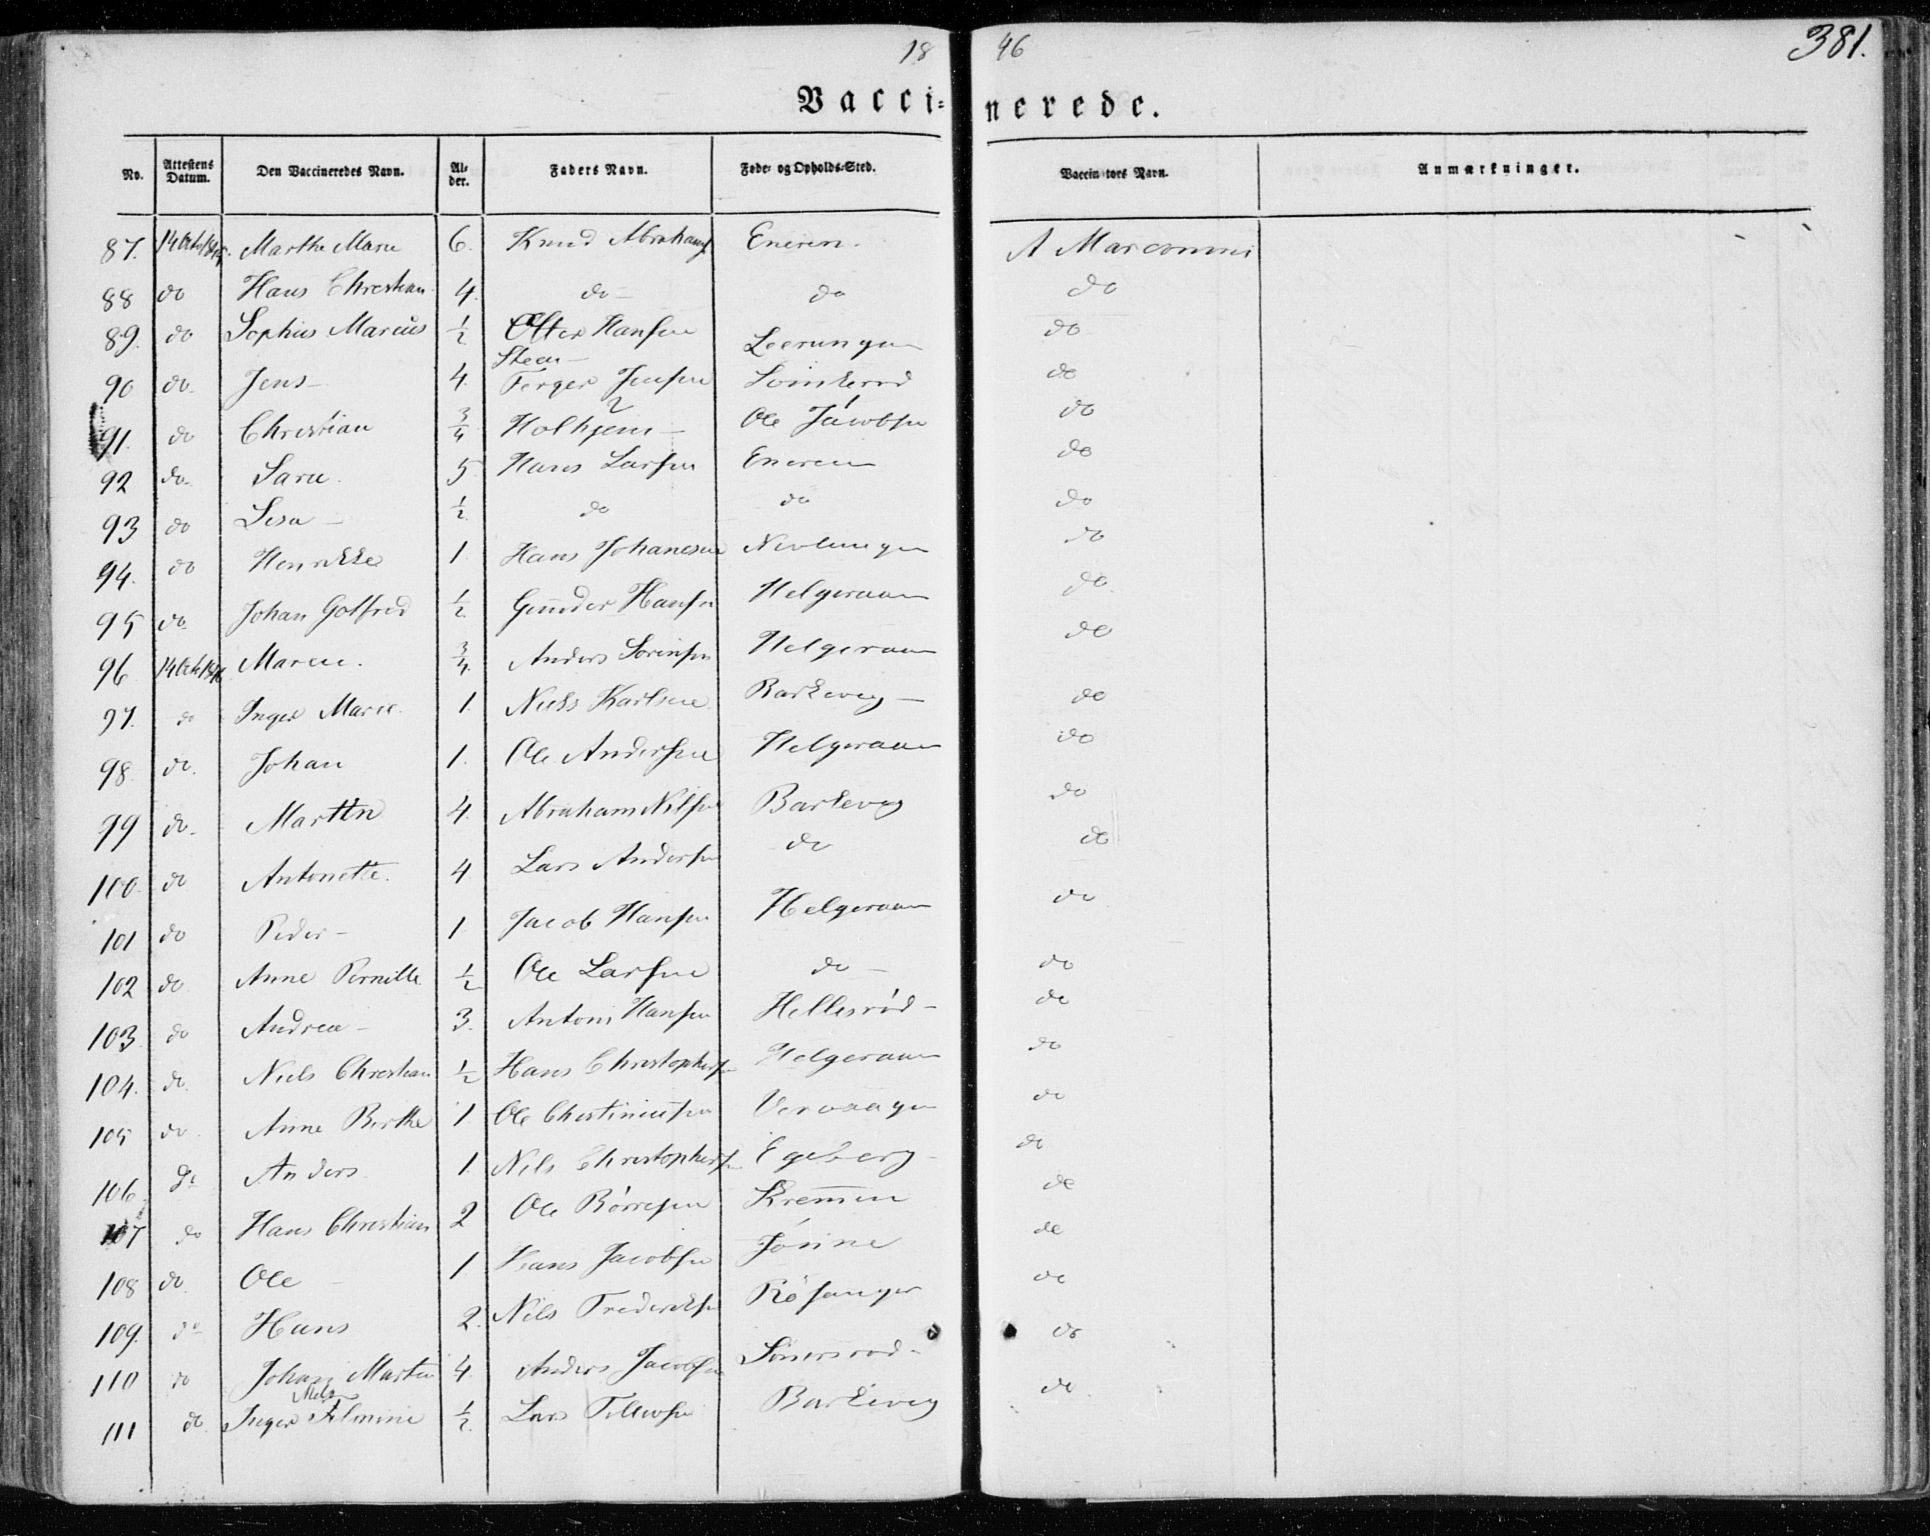 18 46 381.
Vacci- nerede.
No. Attestens Datum. Den Vaccineredes Navn. Al- der. Faders Navn. Føde- og Opholds-Sted. Vaccinators Navn. Anmærkninger.
87. 14 Octo Marthe Marie 6. Knud Abrahams Eneren. A Marconnes
88 do Hans Christian 4. do do do
89. do Sophus Marius 1/2 Hansen Leerungen do
90 do. Jens 4. Steen Terger Jensen do
91. do Christian 3/4 Holhjem Ole Jacobsen do
92 do. Sara 5 Hans Larsen Eneren do
93 do Lisa 1/2. do do do
94. do Henrikke 1. Hans Johanesen Nevlungen do
95 do Johan Gotfred 1/2. Gunder Hansen Helgeraaen do.
96 14 Octo 1846 Maren. 3/4. Anders Sørensen Helgeraaen do
97. do Inger Marie. 1. Niels Karlsen Barkevig do
98 do. Johan 1. Ole Andersen Helgeraaen do
99 do. Martin 4. Abraham Nilsen Barkevig do
100 do Antonette. 4 Lars Andersen do do
101 do Peder 1. Jacob Hansen Helgeraaen do
102 do Anne Pernille 1/2 Ole Larsen do do
103 do Andrea 3. Anton Hansen Hellesrød do
104. do. Niels Christian 1/2 Hans Christophersen Helgeraaen do
105 do Anne Birthe 1. Ole Christiansen Vervaagen do
106 do Anders 1 Nils Christophersen Egeberg do
107 do Hans Christian 2 Ole Børresen do
108 do. Ole 1. Hans Jacobsen do
109. do Hans 2. Nils Frederiksen Røsanger do
110 do Johan Martin 4. Anders Jacobsen Sønersrød do
111 do. Inger 1/2. Lars Tellefsen Barkevig do.